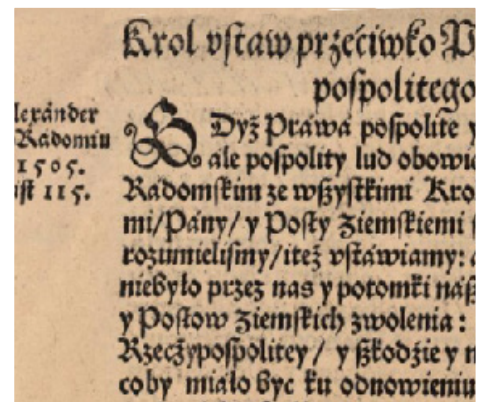 Krol vſtaw przećiwko P
poſpolitego
lexánder
Radomiu
1505.
iſt 115.
GDyż Práwá poſpolite y
ále poſpolity lud obowią
Rádomſkim ze wßyſtkimi Kro
mi/Pány/ y Poſły Ziemſkiemi
rozumieliſmy/iteż vſtáwiamy:
niebyło przez nas y potomki náß
y Poſłow Ziemſkich zwolenia :
Rzeczypoſpolitey / y ßkodzie y n
coby miáło byc ku odnowieniu